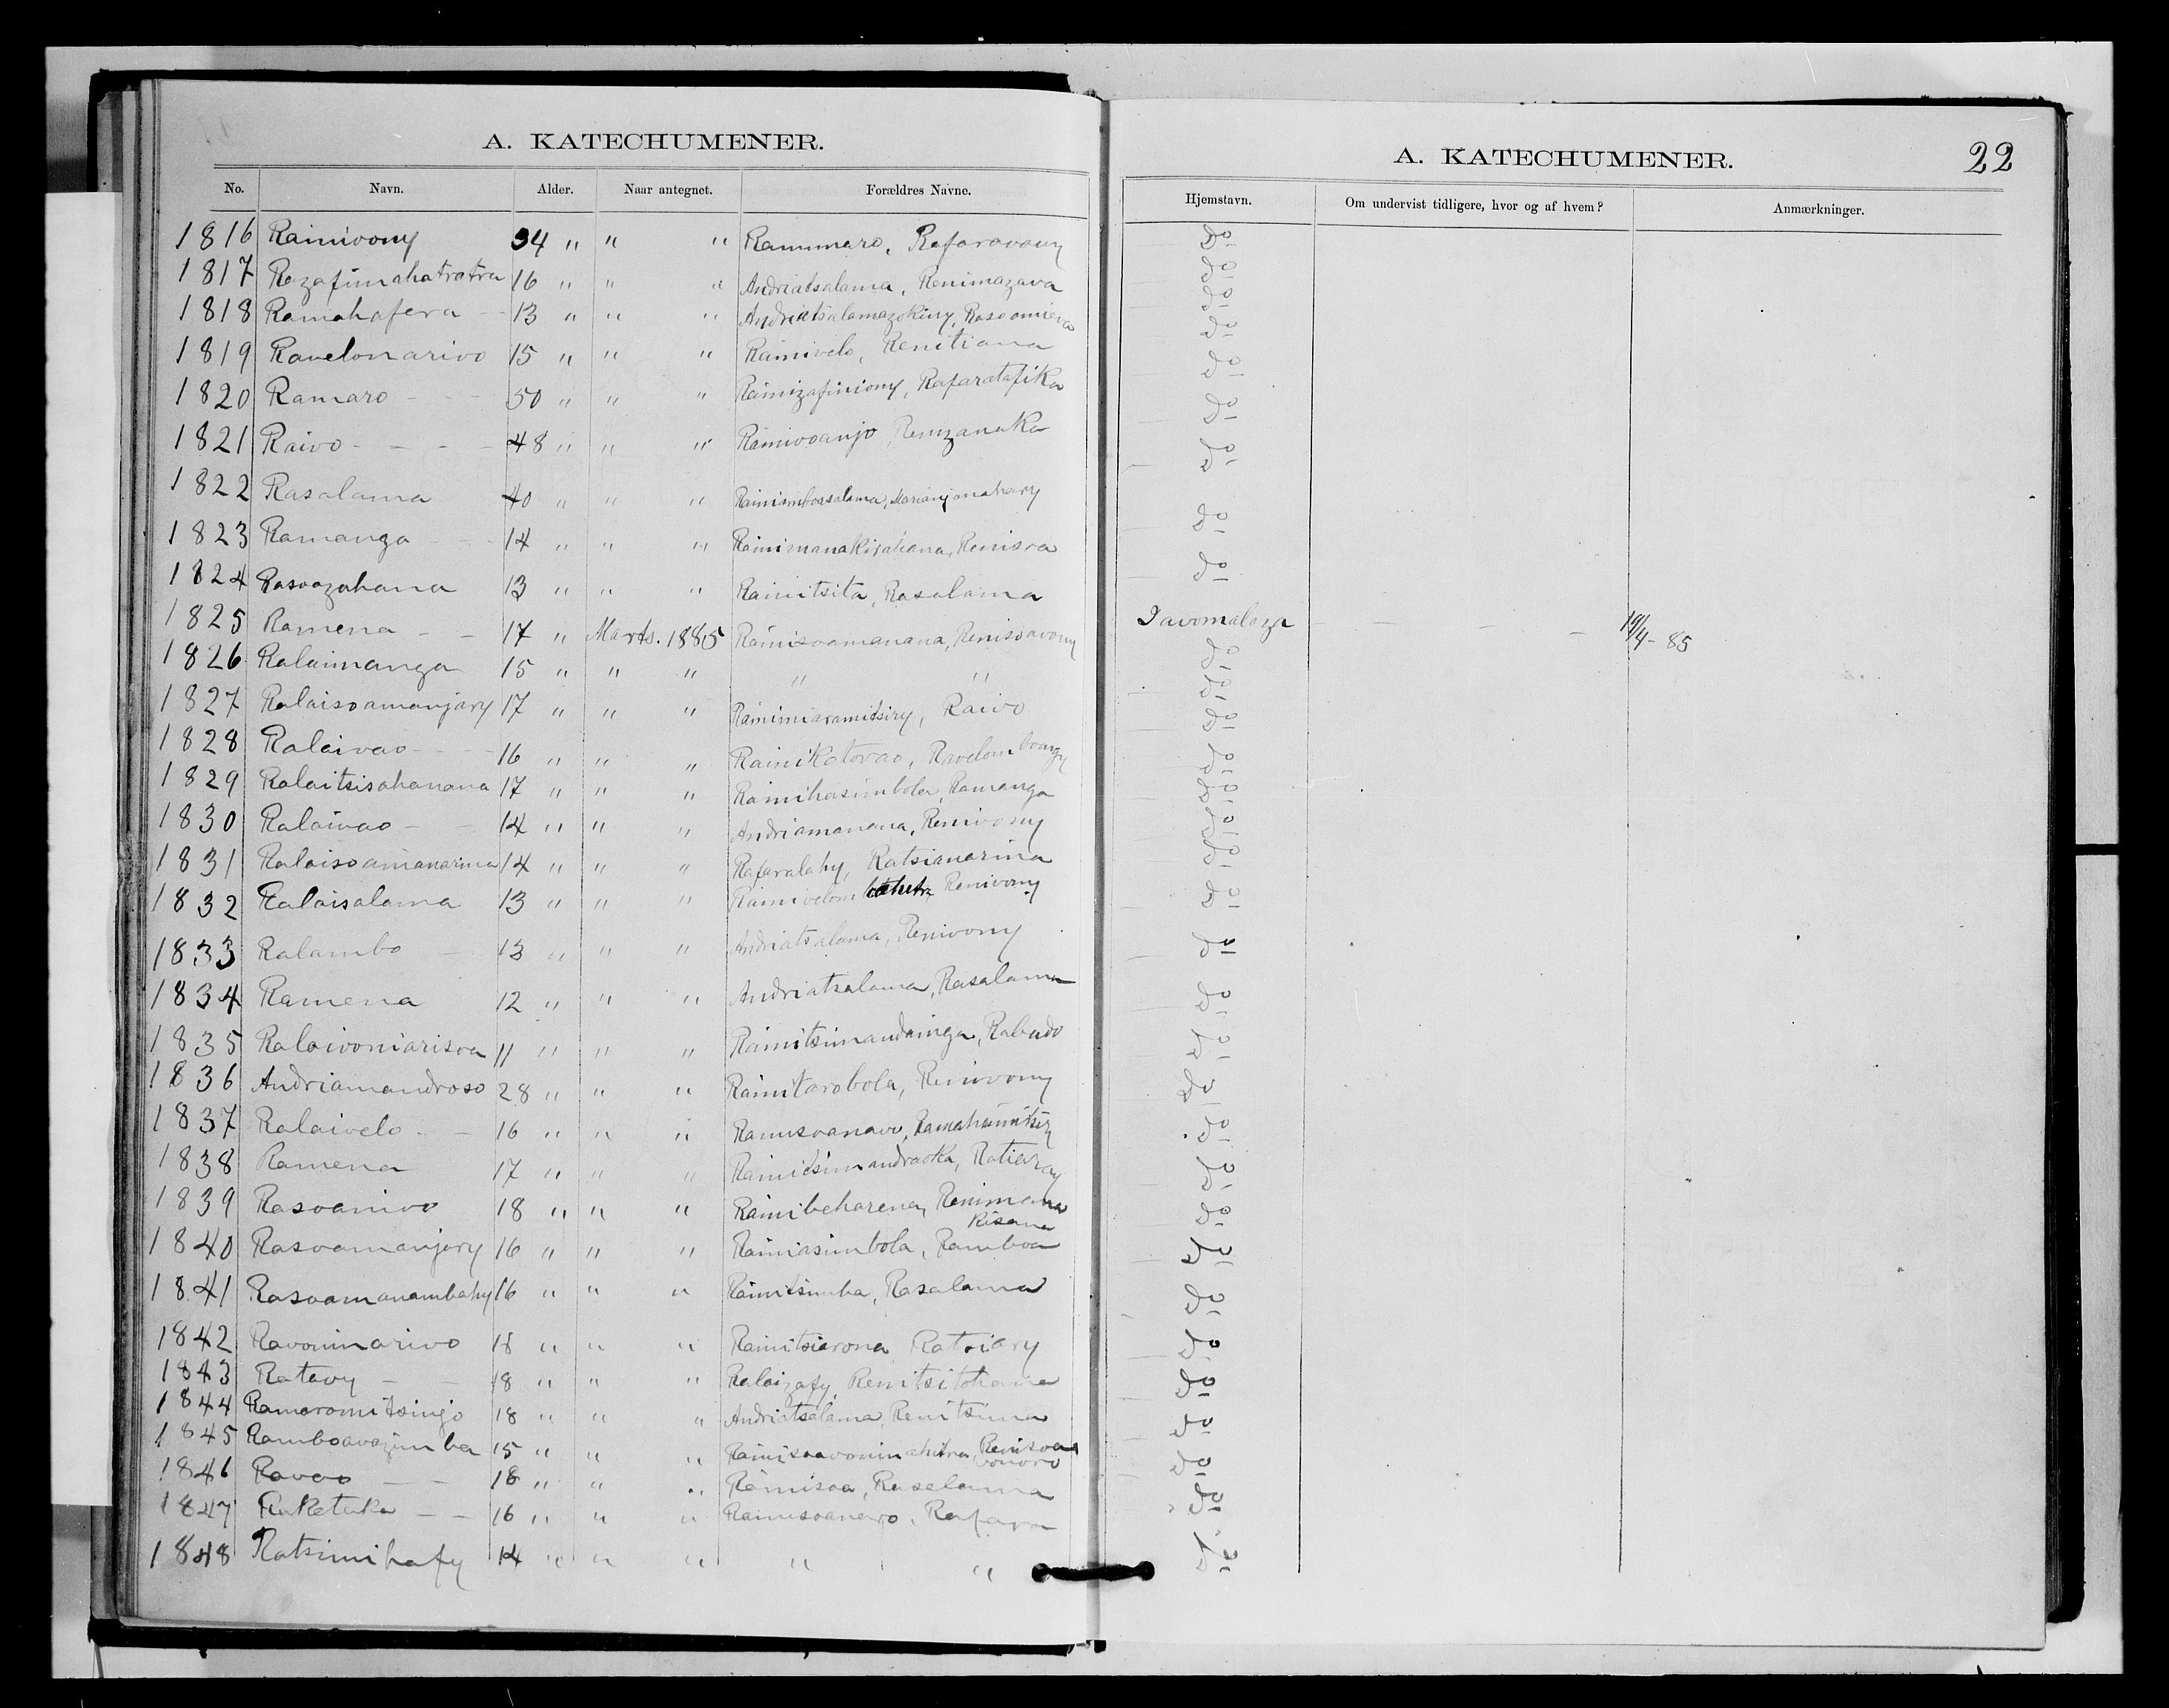 A. KATECHUMENER.
No. Navn. Alder. Naar antegnet. Forældres Navne.
1816 Rainivony 34 " " " Rainimaro, Rafaravony
1817 Razafimahatratra 16 " " " Andriatsalama, Renimazava
1818 Ramahafera - - 13 " " " Andriatsalamazokiny, Rasoamieva
1819 Ravelonarivo 15 " " " Rainivelo, Renitiana
1820 Ramaro - - - 50 " " " Rainizafiniony, Rafaratafika
1821 Raivo - - - - 48 " " " Rainivoanjo Renizanaka
1822 Rasalama 40 " " " Rainiamboasalama,
1823 Ramanga - - 14 " " " Rainimanakisahana, Renisoa
1824 Rasoazahana 13 " " " Rainitsita, Rasalama
1825 Ramena - - 17 " Marts. 1885 Rainisoamanana, Renisoavony
1826 Ralaimanga 15 " " " " "
1827 Ralaisoamanjary 17 " " " Rainimiaramitsiry, Raivo
1828 Ralaivao - - - 16 " " " Rainikotovao, Ravelomboangy
1829 Ralaitsisahanana 17 " " " Rainihasimbola, Ramanga
1830 Ralaivao - - 14 " " " Andriamanana, Renivony
1831 Ralaisoamanarina 14 " " " Rafaralahy, Ratsianarina
1832 Ralaisalama 13 " " " Renivony
1833 Ralambo - 13 " " " Andriatsalama, Renivony
1834 Ramena 12 " " " Andriatsalama, Rasalama
1835 Ralaivoniarisoa 11 " " " Rainitsimandainga, Rabado
1836 Andriamandroso 28 " " " Rainitarobola, Renivony
1837 Ralaivelo - - 16 " " " Rainisoanavo, Ramahainitsiry
1838 Ramena 17 " " " Rainitsimandraoka, Ratiaray
1839 Rasoanivo 18 " " " Rainibeharena, Renimana
kisana
1840 Rasoamanjary 16 " " " Rainiasimbola, Ramboa
1841 Rasoamanambahy 16 " " " Rainitsimba, Rasalama
1842 Ravoninarivo 18 " " " Rainitsiarona Ratsiary
1843 Ratavy - - 18 " " " Ralaizafy, Renitsitohana
1844 Ramaromitsinjo 18 " " " Andriatsalama, Renitsima
1845 Ramboavazimba 15 " " " Rainisoavoninahitra, Renisoa
vonoro
1846 Ravao - - 18 " " " Rainisoa, Rasalama
1847 Raketaka - - 16 " " " Rainisoanavo, Rafara
1848 Ratsimihafy 14 " " " " "
A. KATECHUMENER. 22
Hjemstavn. Om undervist tidligere, hvor og af hvem? Anmærkninger.
do
do
do
do
do
do
do
do
do
Iavomalaza - - - - 19/4 - 85
do
do
do
do
do
do
do
do
do
do
do
do
do
do
do
do
do
do
do
do
do
do
do